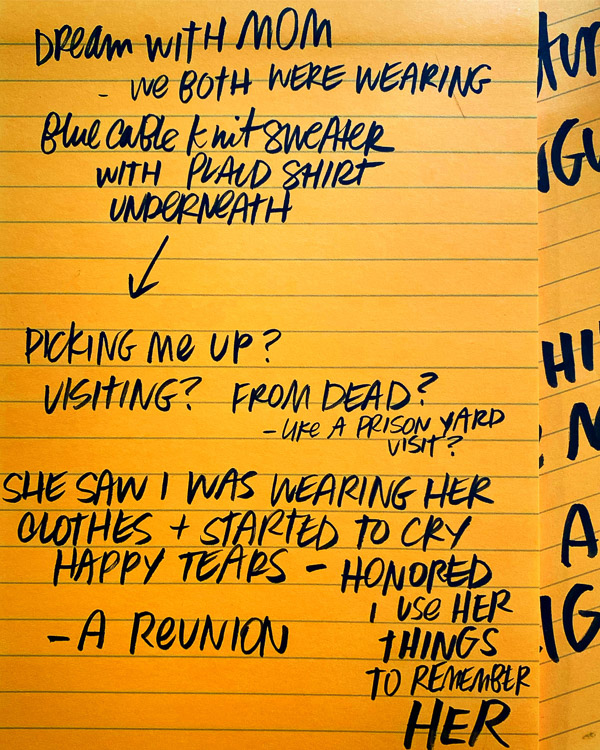 Dream with MOM
- We BOTH WERE WEARING
Blue cable knit SWEATER
WITH PLAID SHIRT
UNDERNEATH
PICKING Me UP?
VISITING? FROM DEAD?
- LIKE A PRISON YARD
VISIT?
SHE SAW I WAS WEARING HER
CLOTHES + STARTED TO CRY
HAPPY TEARS - HONORED
I USE HER
THINGS
TO REMEMBER
HER
- A ReUNION